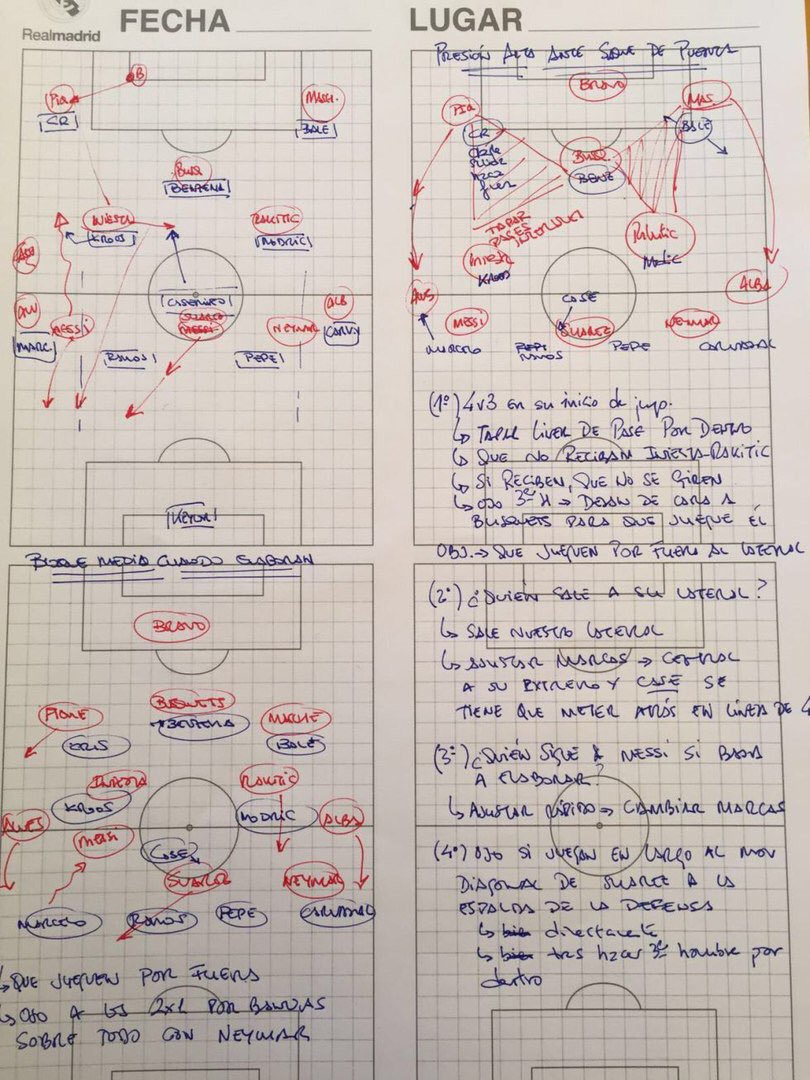 Realmadrid
FECHA
LUGAR
B
Piq
CR
MASCH.
BALE
BUSQ
BENZEMA
INIESTA
KROOS
RAKITIC
MODRIC
CASEMIRO
SUAREZ
MESSI
MESSI
NEYMAR
ALB
CARV
MARC.
RAMOS
PEPE
KEYLOR
PRESIÓN ALTA ANTE SAQUE DE PUERTA
BRAVO
PIQ
MAS.
CR
BALE
BUSQ.
BENZ
TAPAR
PASES
INTERIORES
INIEST
KROOS
Rakitic
ALBA
CASE
MESSI
SUAREZ
NEYMAR
MARCELO
PEPE
RAMOS
PEPE
CARVAJAL
(1º) 4v3 en su inicio de juego.
↳ TAPAR LINEA DE PASE POR DENTRO
↳ QUE NO RECIBAN INIESTA-RAKITIC
↳ SI RECIBEN, QUE NO SE GIREN
↳ OJO 3er H → DEJAN DE CARA A
BUSQUETS PARA QUE JUEGUE ÉL
OBJ. → QUE JUEGUEN POR FUERA AL LATERAL
BLOQUE MEDIO CUANDO ELABORAN
BRAVO
PIQUE
CRIS
BUSQUETS
BENZEMA
MASCHE
BALE
INIESTA
KROOS
RAKITIC
MODRIC
ALVES
MESSI
ALBA
CASE
SUAREZ
NEYMAR
MARCELO
RAMOS
PEPE
CARVAJAL
↳ QUE JUEGUEN POR FUERA
↳ OJO A LOS 2x1 POR BANDAS
SOBRE TODO CON NEYMAR
(2º) ¿QUIÉN SALE A SU LATERAL?
↳ SALE NUESTRO LATERAL
↳ AJUSTAR MARCAS → CENTRAL
A SU EXTREMO Y CASE SE
TIENE QUE METER ATRÁS EN LÍNEA DE 4
(3º) ¿QUIÉN SIGUE A MESSI SI BAJA
A ELABORAR?
↳ AJUSTAR RÁPIDO → CAMBIAR MARCAS
(4º) OJO SI JUEGAN EN LARGO AL MOV
DIAGONAL DE SUAREZ A LA
ESPALDA DE LA DEFENSA
↳ bien directamente
↳ bien tras hzar 3er hombre por
dentro